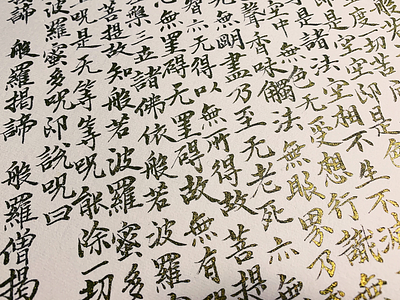 度一切苦
空即是色
是諸法空相不生不滅
空中無色无受想行識
聲香味觸法無眼界乃
無明盡乃至无老死亦無
亦无得以無所得故菩提
無罣碍无罣碍故無有
三世諸佛依般若波羅
菩提故知般若波羅蜜多
呪是无等等呪能除一切
波羅蜜多呪即說呪曰
諦 般羅揭諦 般羅僧揭